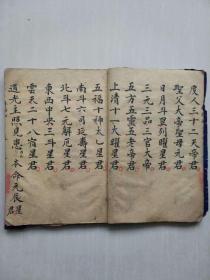 度人三十二天帝君
聖父大帝聖母元君
日月斗罡列曜星君
三元三品三官大帝
五方五靈五老帝君
上清十一大曜星君
五福十神太乙星君
南斗六司延壽星君
北斗七元解厄星君
東西中央三斗星君
雲天二十八宿星君
道光主照見患 本命元辰星君